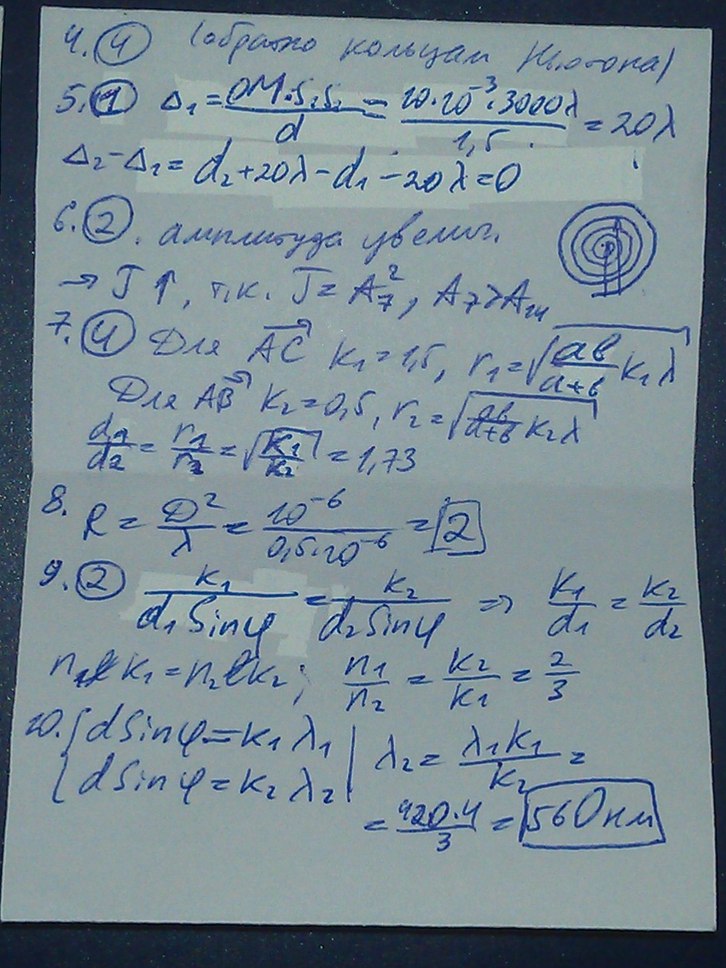 4. 4 (обратно кольцам Ньютона)
5. 1 Δ₁ = OM·S₁S₂/d = 10·10⁻³·3000λ/1,5 = 20λ
Δ₂ - Δ₁ = d₂ + 20λ - d₁ - 20λ = 0
6. 2. амплитуда увелич.
→ J↑, т.к. J = A₇², A₇ > A₁₄
7. 4 Для AC k₁ = 1,5, r₁ = √(ab/(a+b) k₁λ)
Для AB k₂ = 0,5, r₂ = √(ab/(a+b) k₂λ)
d₁/d₂ = r₁/r₂ = √(k₁/k₂) = 1,73
8. R = D²/λ = 10⁻⁶/0,5·10⁻⁶ = 2
9. 2 k₁/(d₁ sinφ) = k₂/(d₂ sinφ) ⇒ k₁/d₁ = k₂/d₂
n₁ k₁ = n₂ k₂; n₁/n₂ = k₂/k₁ = 2/3
10. { d sinφ = k₁λ₁ | λ₂ = λ₁k₁/k₂ =
{ d sinφ = k₂λ₂ |
= 420·4/3 = 560 нм